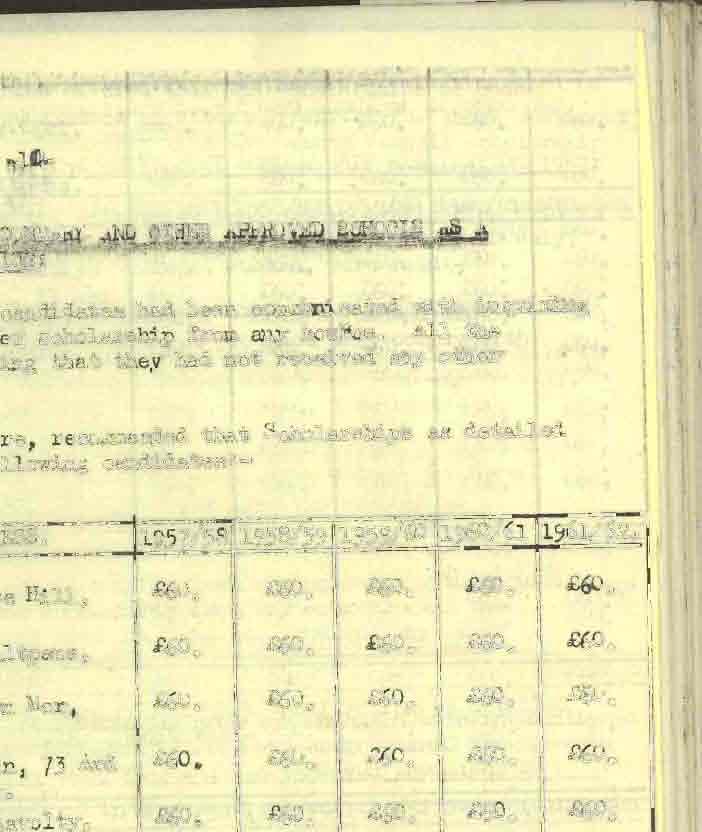 -10-
AND OTHER APPROVED SCHOOLS AS A
candidates had been communicated with inquiring
er scholarship from any source. All the
ing that they had not received any other
re, recommended that Scholarships as detailed
llowing candidates:-
ESS. 1957/58 1958/59 1959/60 1960/61 1961/62.
e Hill, £60. £60. £60. £60. £60.
ltpans, £60. £60. £60. £60. £60.
n Mor, £60. £60. £60. £60. £60.
n, 73 Ard £60. £60. £60. £60. £60.
avolty, £60. £60. £60. £60. £60.